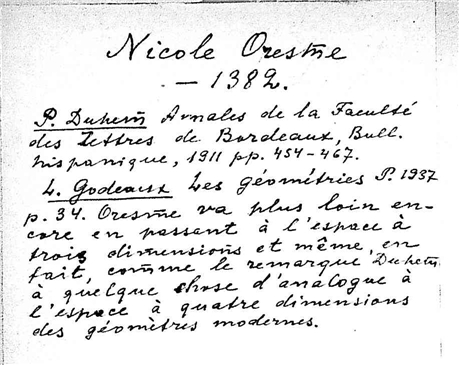 Nicole Oresme
— 1382.
P. Duhem Annales de la Faculté
des Lettres de Bordeaux, Bull.
hispanique, 1911 pp. 454-467.
L. Godeaux Les géométries P. 1937
p. 34. Oresme va plus loin en-
core en passant à l'espace à
trois dimensions et même, en
fait, comme le remarque Duhem
à quelque chose d'analogue à
l'espace à quatre dimensions
des géomètres modernes.